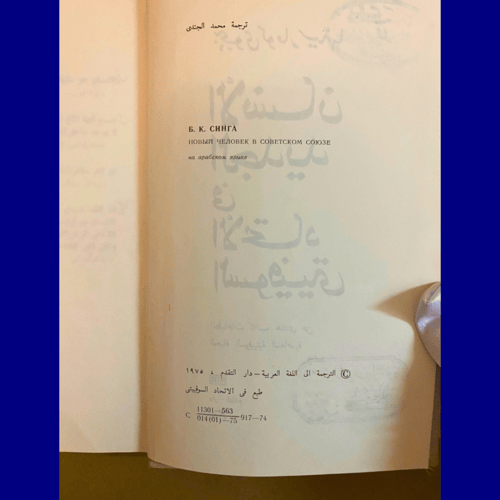 ترجمة محمد الجندى
Б. К. СИНГА
НОВЫЙ ЧЕЛОВЕК В СОВЕТСКОМ СОЮЗЕ
на арабском языке
© الترجمة الى اللغة العربية – دار التقدم ، ١٩٧٥
طبع فى الاتحاد السوفييتى
С 11301—563
014(01)—75 917—74